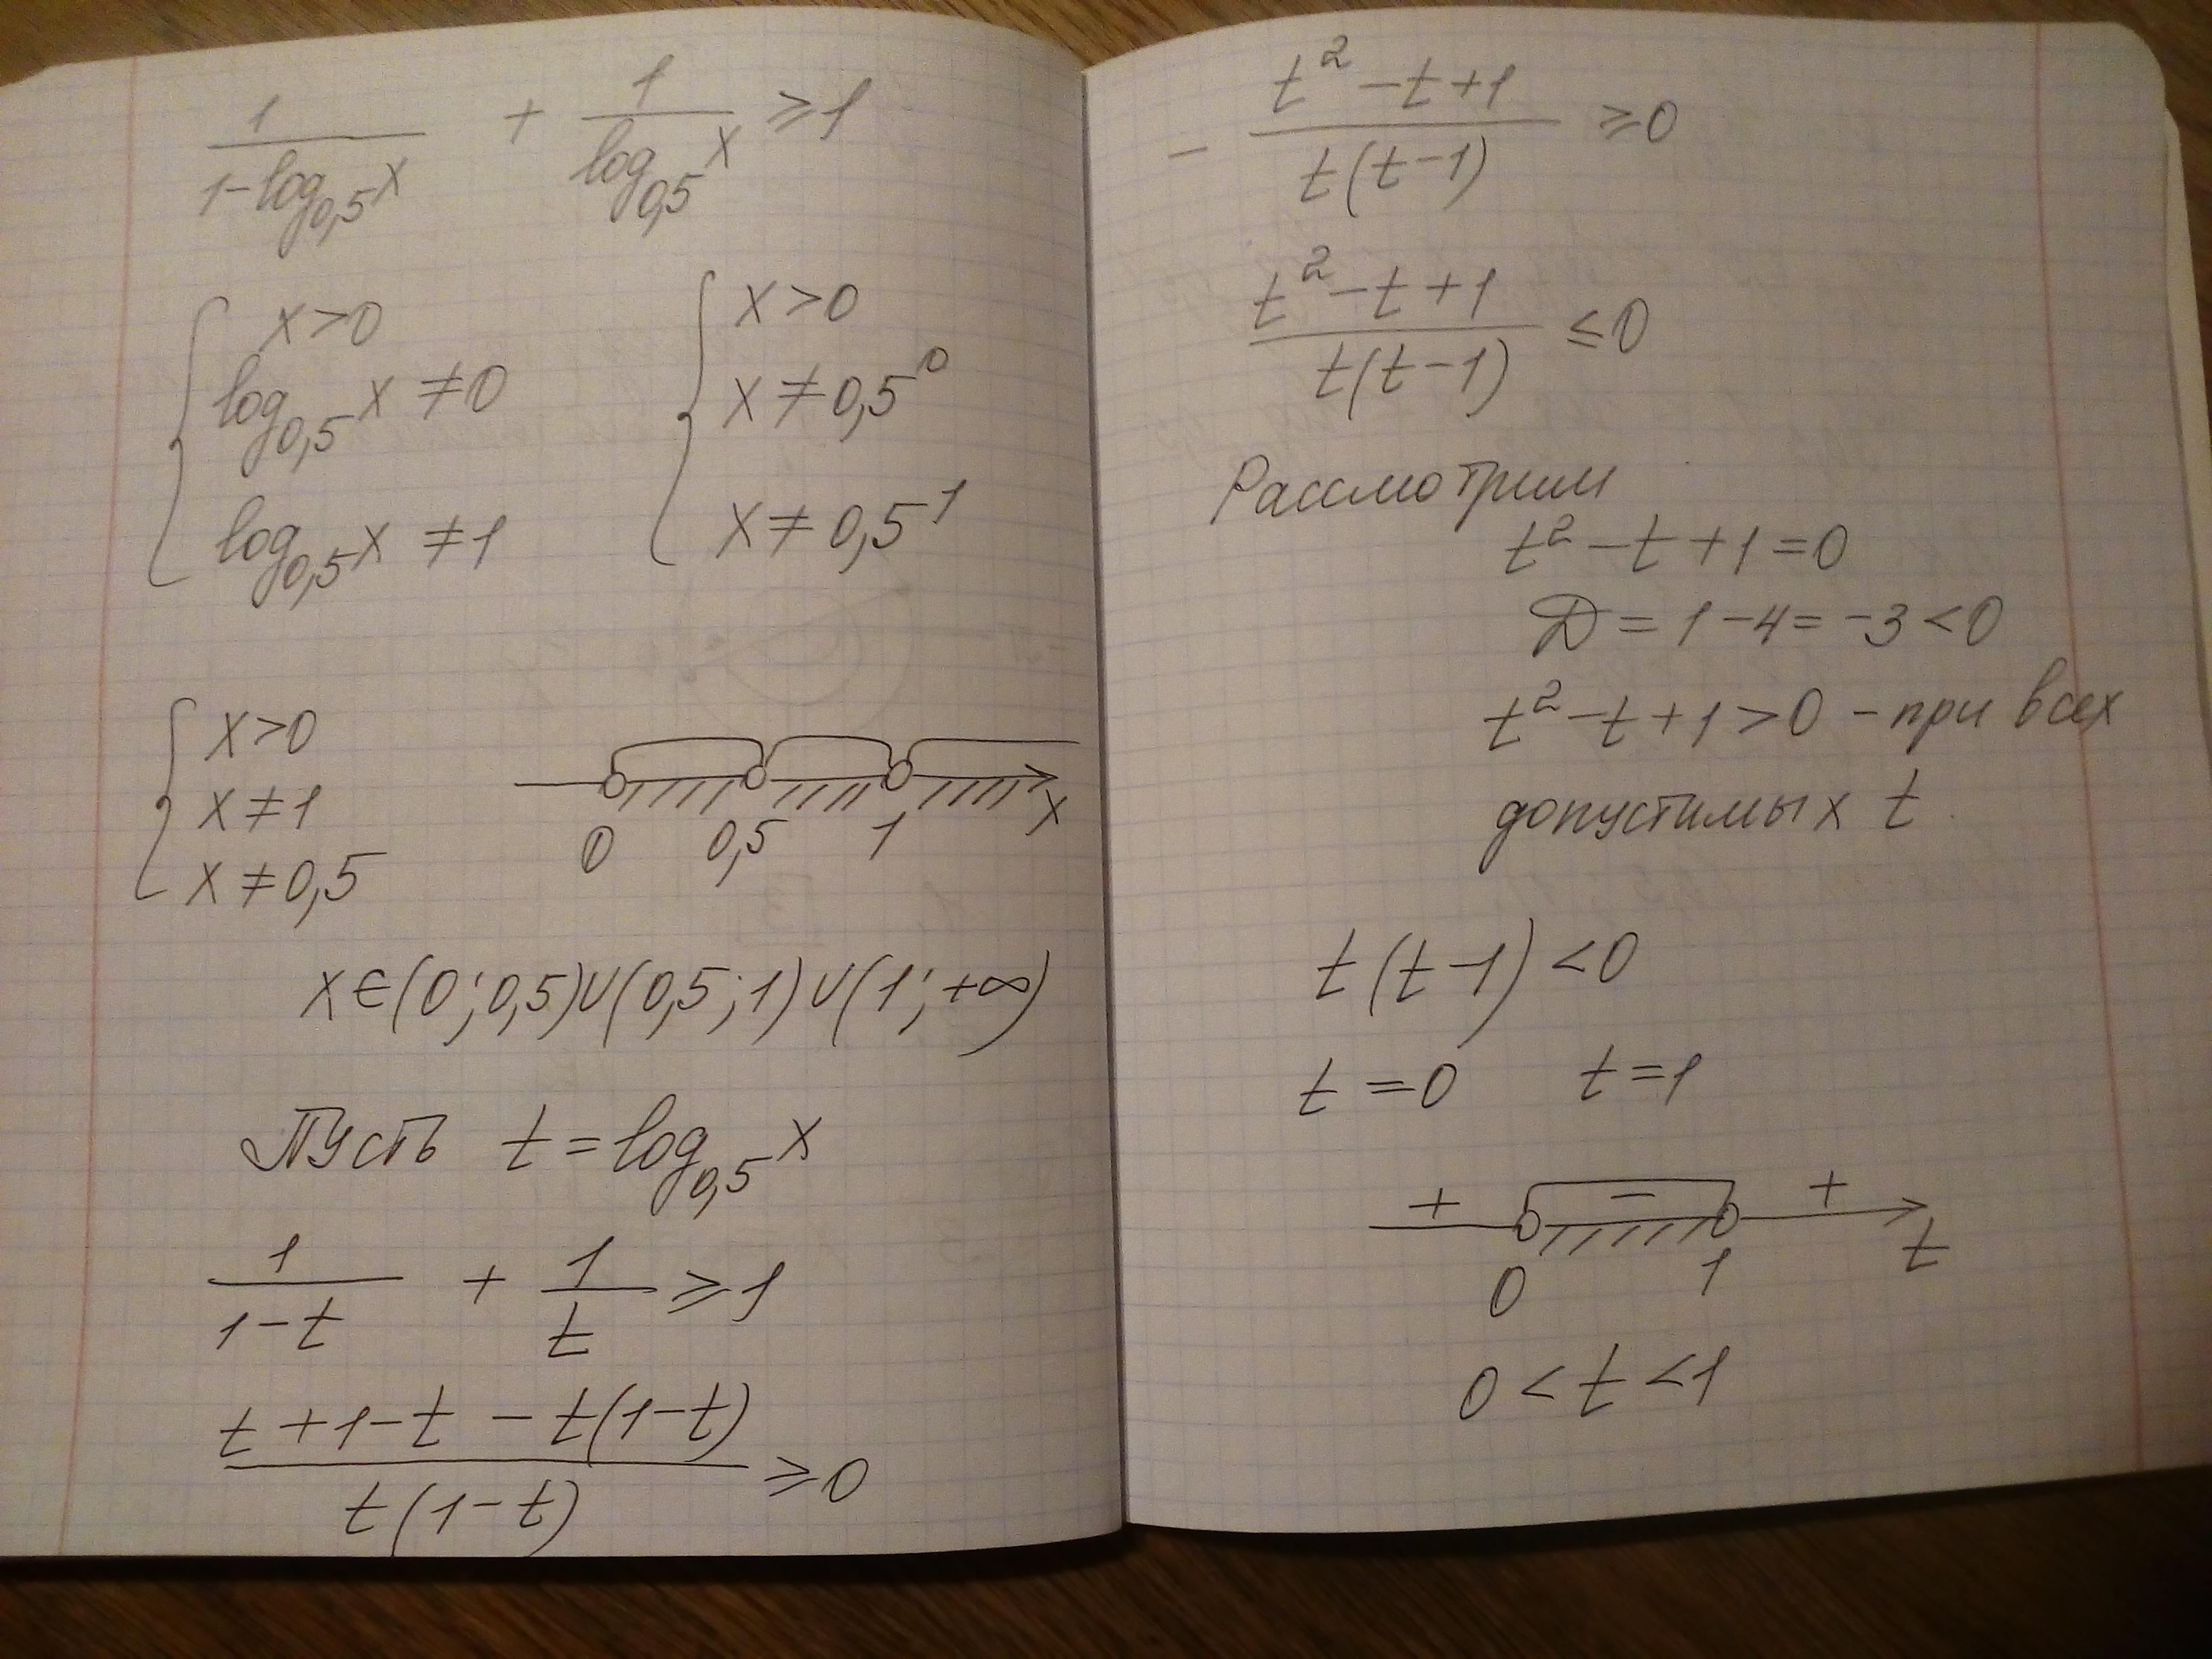 1/(1-log_{0,5}x) + 1/(log_{0,5}x) ≥1
{ x>0
log_{0,5}x ≠0
log_{0,5}x ≠1
{ x>0
x≠0,5^0
x≠0,5^1
{ x>0
x≠1
x≠0,5
0 0,5 1 x
x∈(0;0,5)∪(0,5;1)∪(1;+∞)
Пусть t=log_{0,5}x
1/(1-t) + 1/t ≥1
(t+1-t-t(1-t))/(t(1-t)) ≥0
- (t²-t+1)/(t(t-1)) ≥0
(t²-t+1)/(t(t-1)) ≤0
Рассмотрим
t²-t+1=0
D=1-4=-3<0
t²-t+1>0 - при всех
допустимых t
t(t-1)<0
t=0 t=1
+ - +
0 1 t
0<t<1